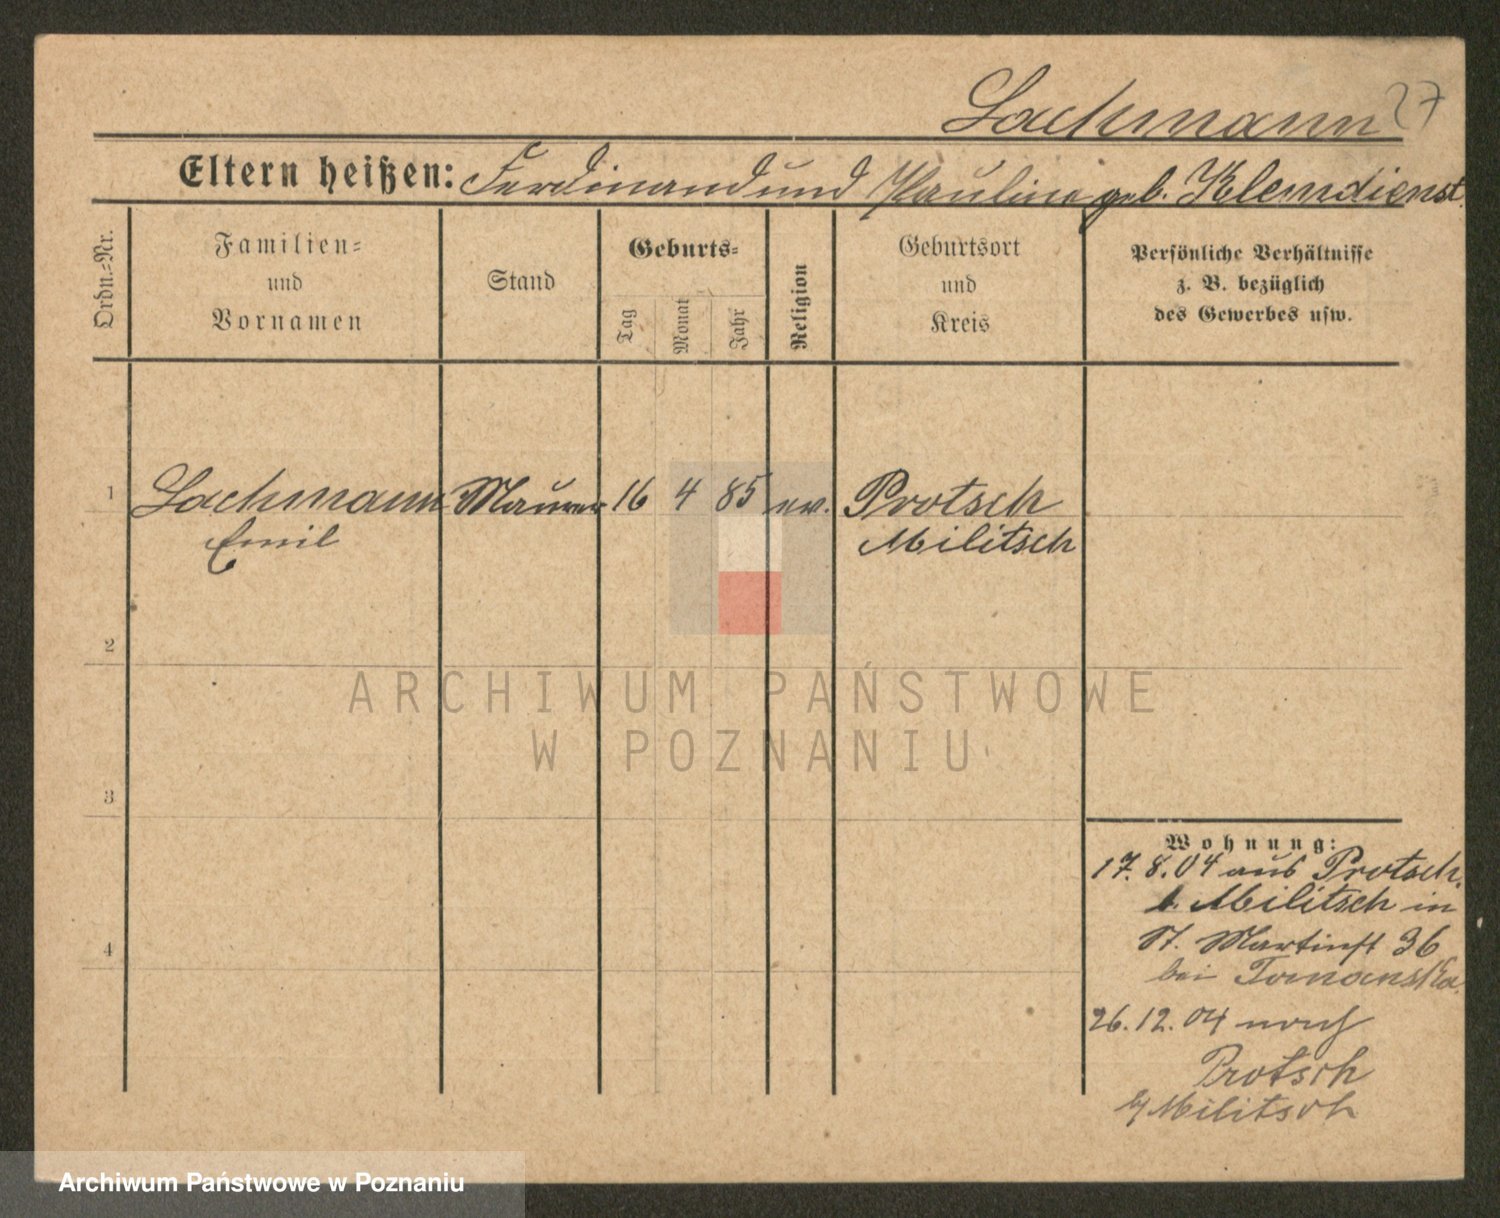 Lachmann 27
Eltern heißen: Ferdinand und Pauline geb. Klemdienst.
Ordn.=Nr.
Familien=
und
Vornamen
Stand
Geburts=
Tag
Monat
Jahr
Religion
Geburtsort
und
Kreis
Persönliche Verhältnisse
z. B. bezüglich
des Gewerbes usw.
1 Lachmann Maurer 16 4 85 ev. Protsch
Emil Militsch
2
3
4
Wohnung:
17.8.04 aus Protsch
b. Militsch in
St. Martinst 36
bei Tomanska
26.12.04 nach
Protsch
b/ Militsch
ARCHIWUM PAŃSTWOWE
W POZNANIU
Archiwum Państwowe w Poznaniu